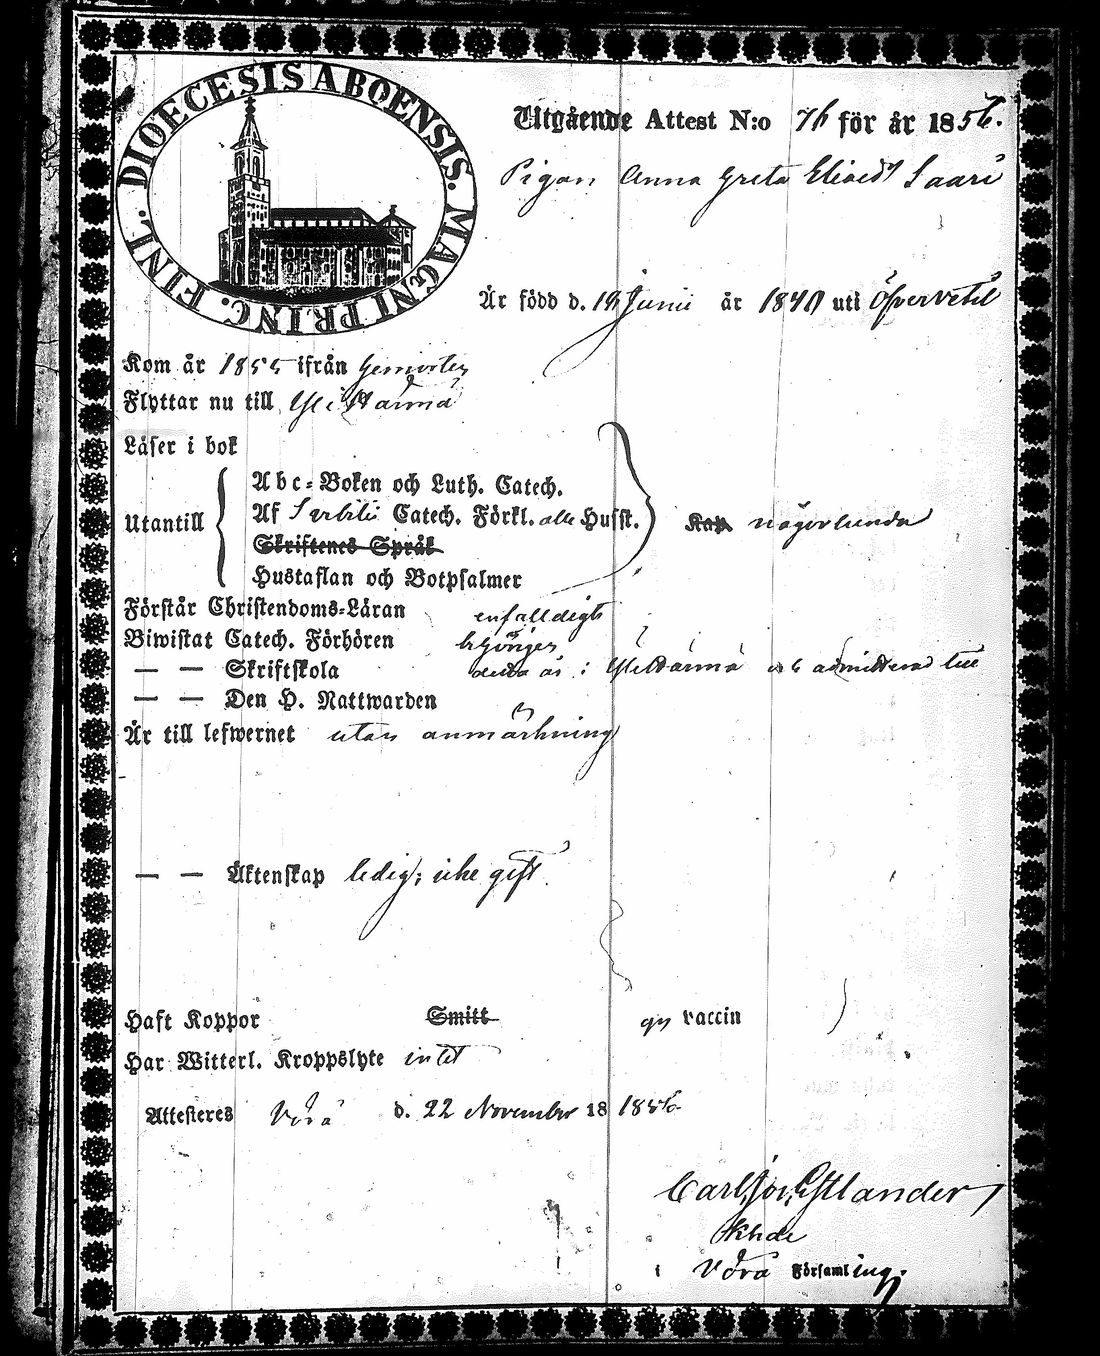 DIOECESIS ABOENSIS. MAGNI PRINC. FINL.
Utgående Attest N:o 76 för år 1856.
Pigan Anna Greta Saari
Är född d. Junii år 1840 uti Öfvervetil
Kom år 1855 ifrån
Flyttar nu till Ylihärmä
Läser i bok
Utantill
Abc-Boken och Luth. Catech.
Af Svebilii Catech. Förkl. alle Husst. någorlunda
Skriftenes Språk
Hustaflan och Botpsalmer
Förstår Christendoms-Läran enfalldigt
Biwistat Catech. Förhören
— — Skriftskola detta år i Ylihärmä och admitterad till
— — Den H. Nattwarden
Är till lefwernet utan anmärkning
— — Äktenskap ledig; icke gift.
Haft Koppor Smitt vaccin
Har Witterl. Kroppslyte intet
Attesteres Vörå d. 22 November 18 1856
Carl Estlander
Khde
i Vörå Församling.